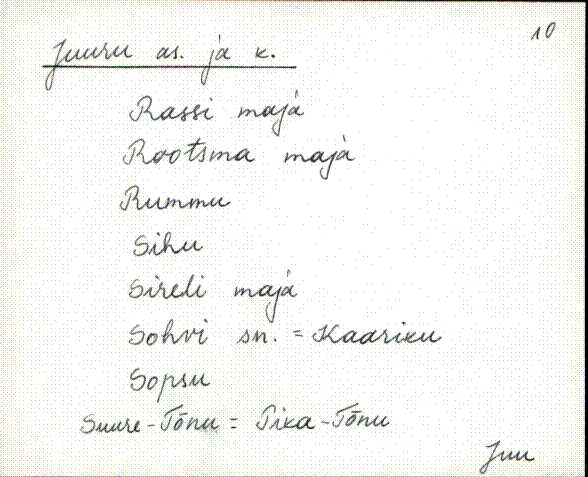 10
Juuru as. ja k.
Rassi maja
Rootsma maja
Rummu
Sihu
Sireli maja
Sohvi sn. = Kaariku
Sopsu
Suure-Tõnu = Pika-Tõnu
Juu